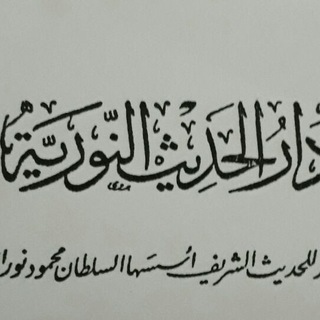 دَارُ الحَدِيثِ النُّورِيَّة
للحديث الشريف أسسها السلطان محمود نور